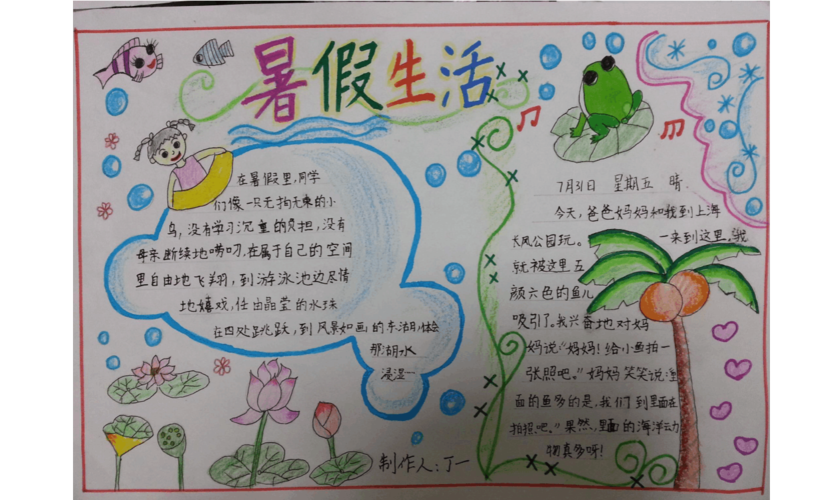 暑假生活
在暑假里,同学
们像一只无拘无束的小
鸟,没有学习沉重的负担,没有
母亲断续地唠叨,在属于自己的空间
里自由地飞翔,到游泳池边尽情
地嬉戏,任由晶莹的水珠
在四处跳跃,到风景如画的东湖,体会
那湖水
浸湿一
制作人:丁一
7月31日 星期五 晴
今天,爸爸妈妈和我到上海
长风公园玩。一来到这里,我
就被这里五
颜六色的鱼儿
吸引了。我兴奋地对妈
妈说“妈妈!给小鱼拍一
张照吧。”妈妈笑笑说:里
面的鱼多的是,我们到里面在
拍照吧。”果然,里面的海洋动
物真多呀!